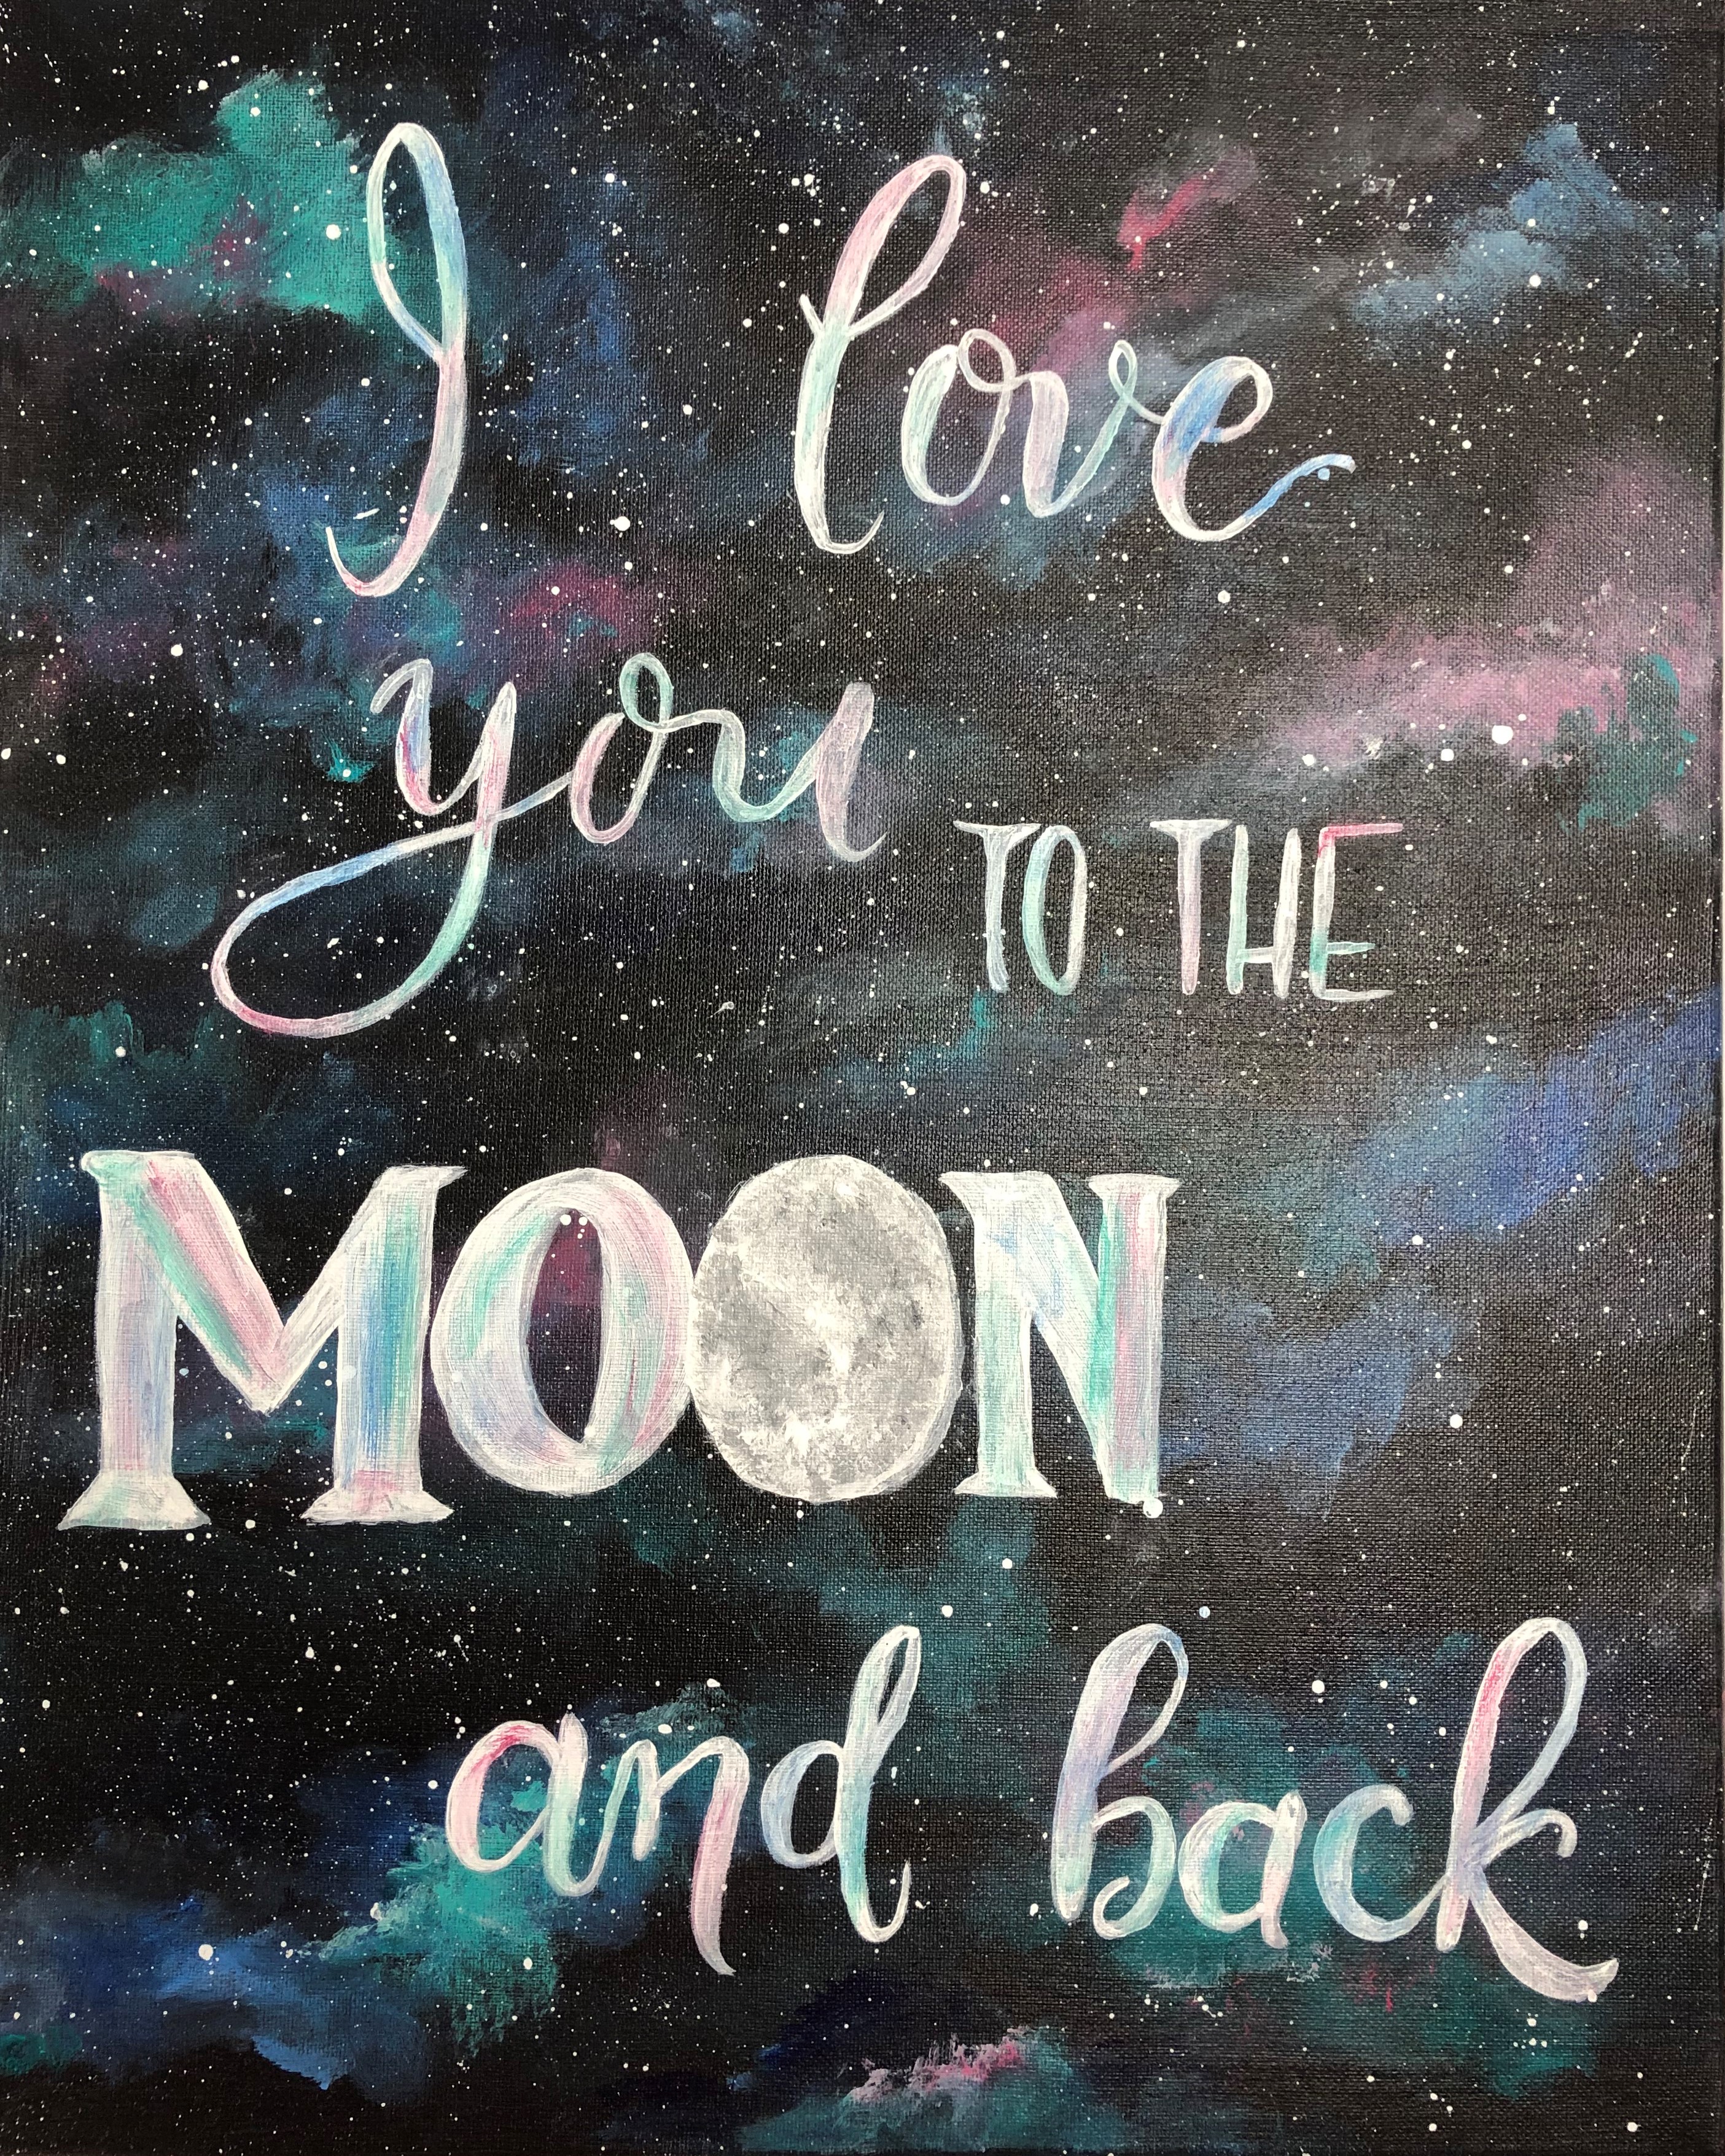 I love
you TO THE
MOON
and back